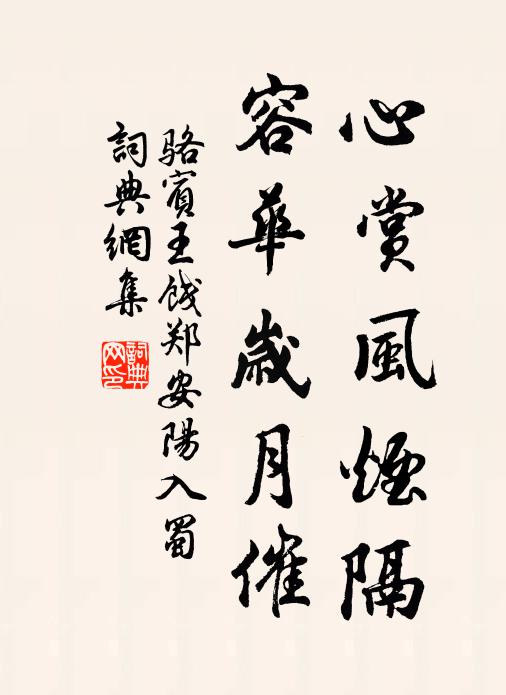 心賞風煙隔
容華歲月催
骆賓王餞郑安陽入蜀
詞典網集
詞典網印